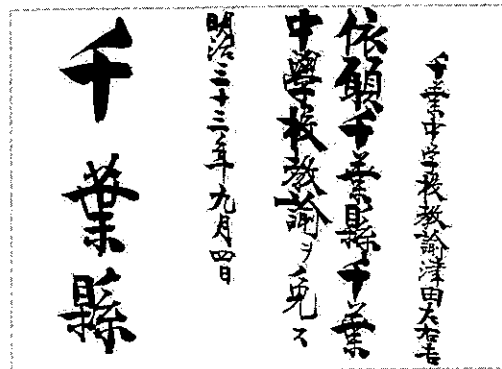 千葉中学校教諭津田左右吉
依願千葉縣千葉
中學校教諭ヲ免ス
明治三十三年九月四日
千葉縣